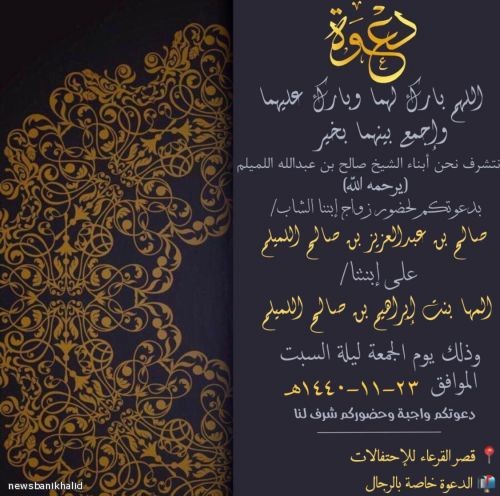 دعوة
اللهم بارك لهما وبارك عليهما
وإجمع بينهما بخير
نتشرف نحن أبناء الشيخ صالح بن عبدالله اللميلم
(يرحمه الله)
بدعوتكم لحضور زواج إبننا الشاب/
صالح بن عبدالعزيز بن صالح اللميلم
على إبنتنا/
المها بنت إبراهيم بن صالح اللميلم
وذلك يوم الجمعة ليلة السبت
الموافق ٢٣-١١-١٤٤٠هـ
دعوتكم واجبة وحضوركم شرف لنا
قصر القرعاء للإحتفالات
الدعوة خاصة بالرجال
newsbanikhalid